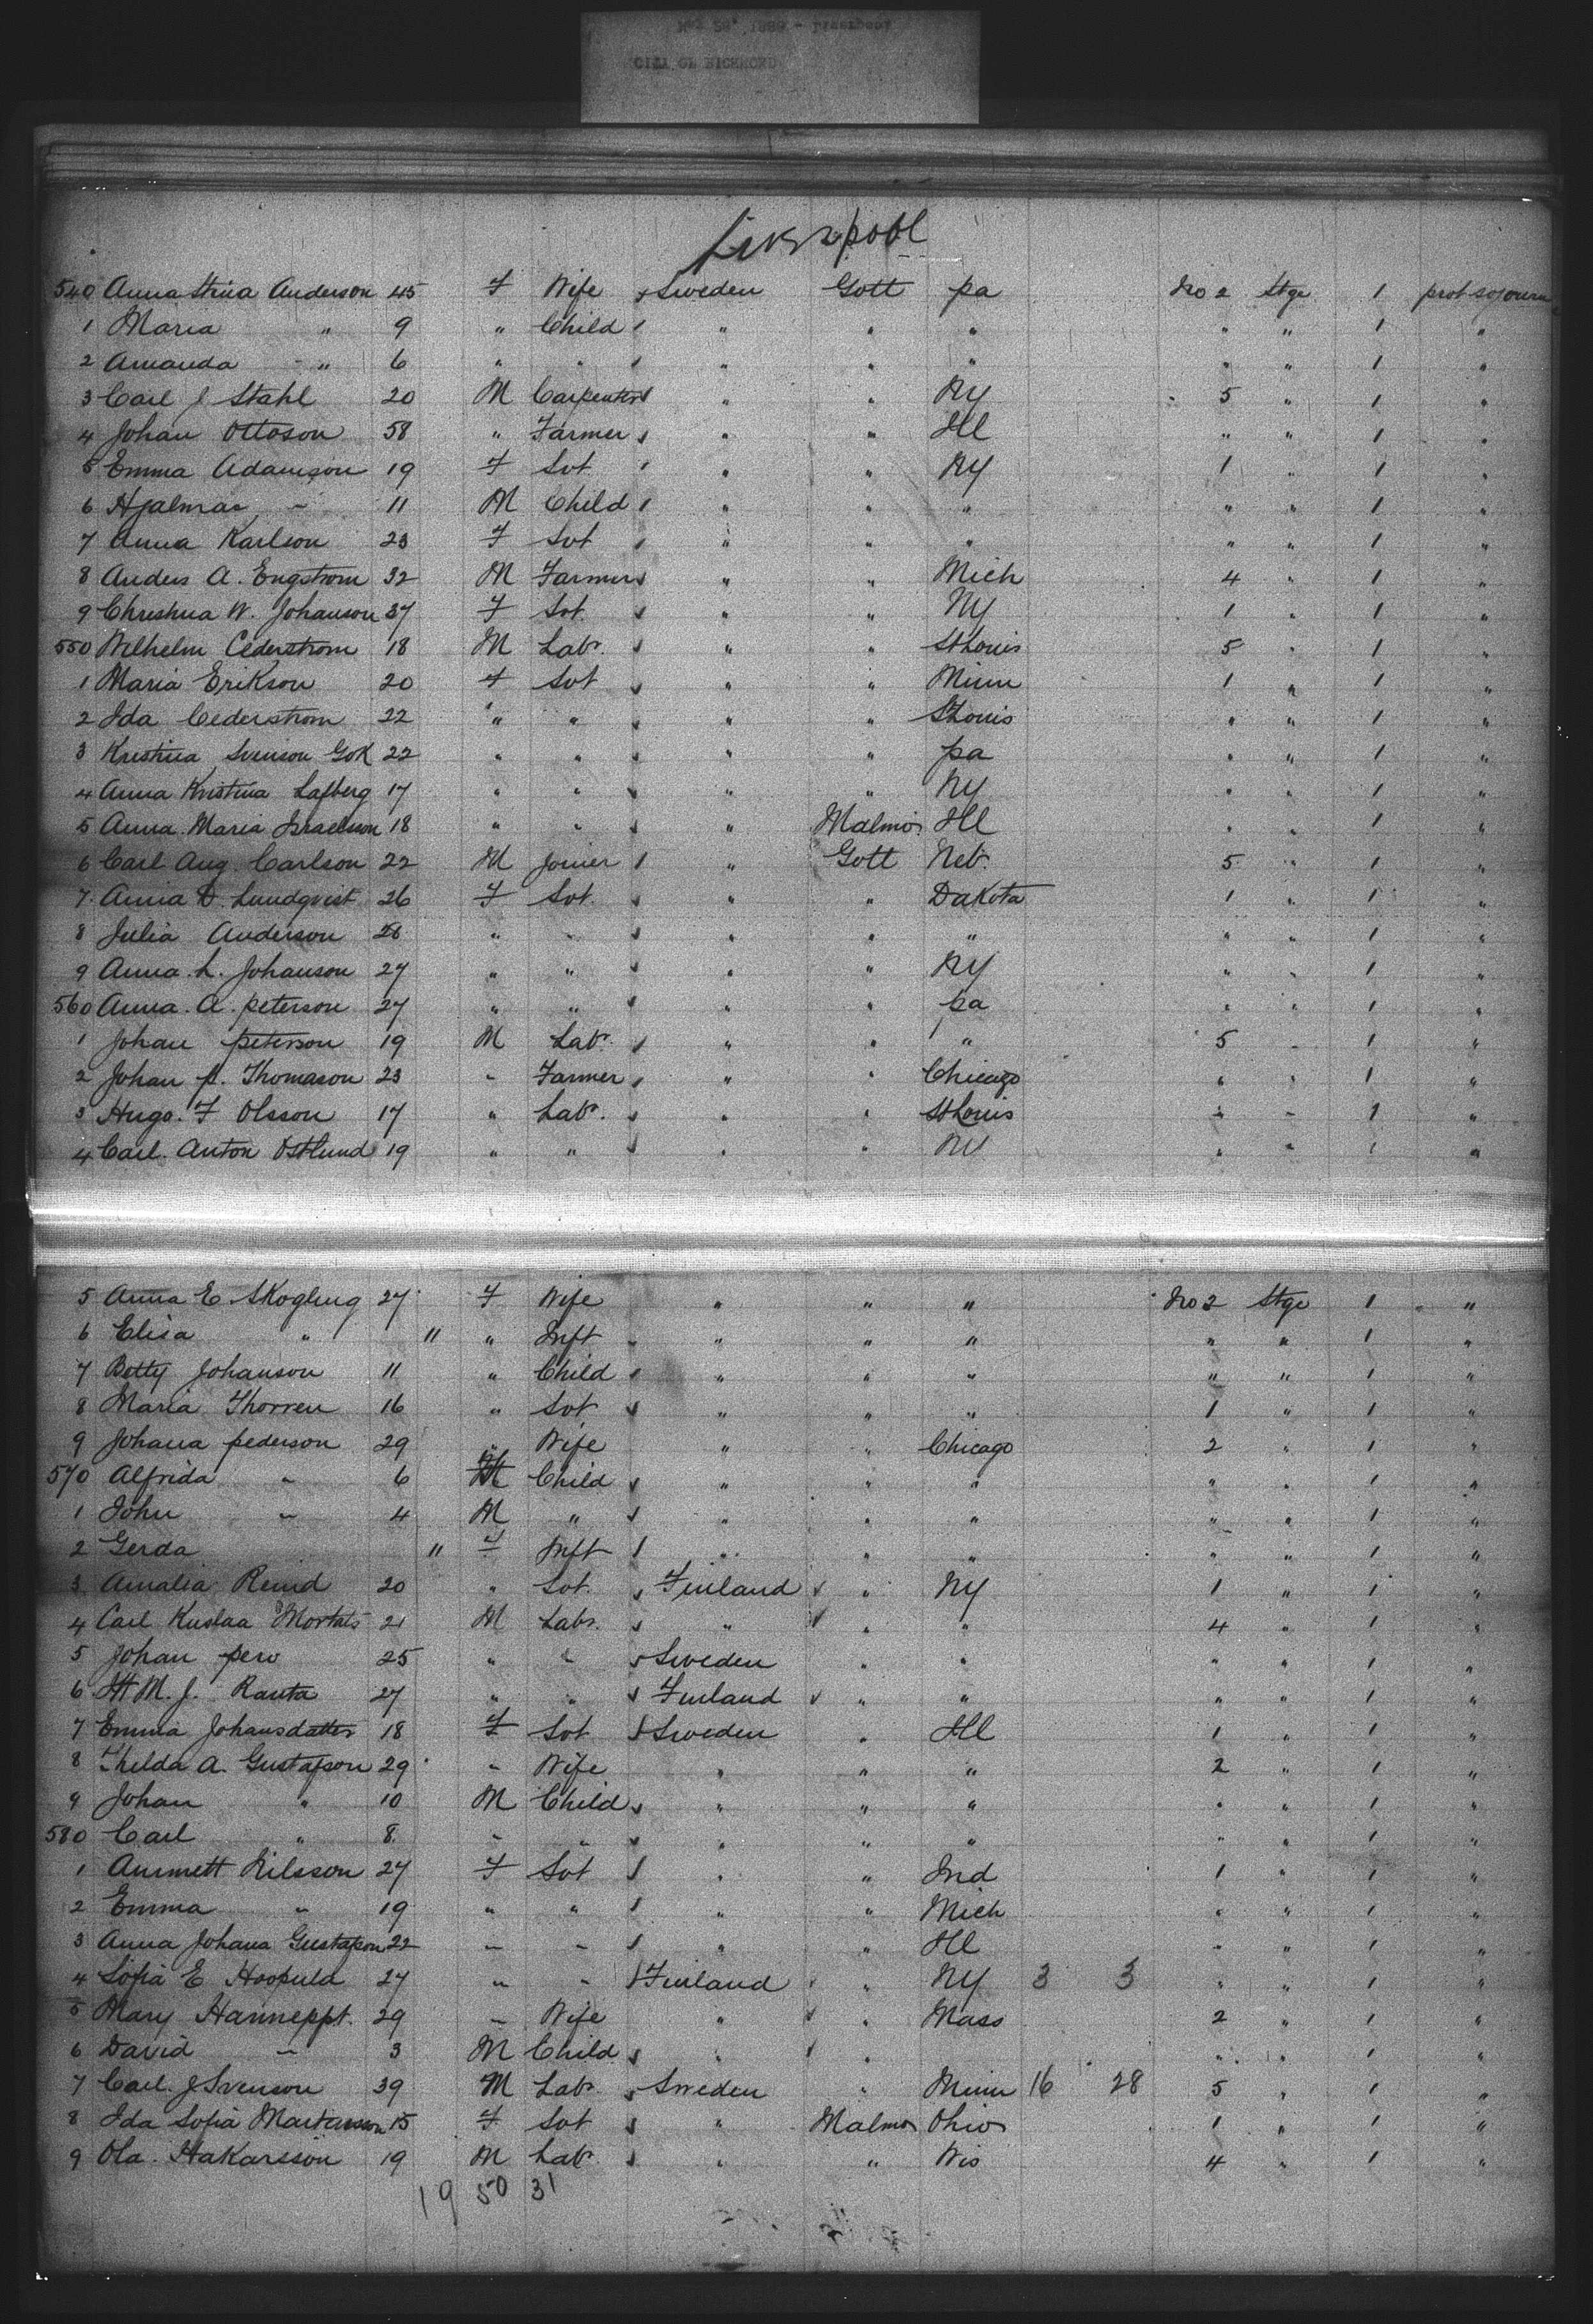 CITY OF RICHMOND
Liverpool
540 Anna Stina Anderson 45 F Wife Sweden Gott pa No 2 Stge 1 prot sojourn
1 Maria " 9 " Child " " " " " 1 "
2 Amanda " 6 " " " " " " " 1 "
3 Carl J Stahl 20 M Carpenter " " NY 5 " 1 "
4 Johan Ottoson 58 " Farmer " " Ill " " 1 "
5 Emma Adamson 19 F Svt " " NY 1 " 1 "
6 Hjalmar " 11 M Child " " " " " 1 "
7 Anna Karlson 23 F Svt " " " " " 1 "
8 Anders A. Engstrom 32 M Farmer " " Mich 4 " 1 "
9 Christina W. Johanson 37 F Svt " " NY 1 " 1 "
550 Wilhelm Cederstrom 18 M Labr. " " St Louis 5 " 1 "
1 Maria Erikson 20 F Svt " " Minn 1 " 1 "
2 Ida Cederstrom 22 " " " " St Louis " " 1 "
3 Kristina Svenson Gok 22 " " " " pa " " 1 "
4 Anna Kristina Lafberg 17 " " " " NY " " 1 "
5 Anna Maria Israelson 18 " " " Malmo Ill " " 1 "
6 Carl Aug Carlson 22 M Joiner " Gott Neb. 5 " 1 "
7 Anna D. Lundqvist 26 F Svt. " " Dakota 1 " 1 "
8 Julia Anderson 28 " " " " " " " 1 "
9 Anna L. Johanson 27 " " " " NY " " 1 "
560 Anna A. peterson 27 " " " " pa " " 1 "
1 Johan peterson 19 M Labr. " " " 5 " 1 "
2 Johan p. Thomason 23 " Farmer " " Chicago " " 1 "
3 Hugo. F Olsson 17 " Labr. " " St Louis " " 1 "
4 Carl. Anton Ostlund 19 " " " " NY " " 1 "
5 Anna E Skogling 27 F Wife " " " No 2 Stge 1 "
6 Elisa " " " Inft " " " " " 1 "
7 Betty Johanson 11 " Child " " " " " 1 "
8 Maria Thorren 16 " Svt " " " 1 " 1 "
9 Johana pederson 29 " Wife " " Chicago 2 " 1 "
570 Alfrida " 6 Child " " " " " 1 "
1 John " 4 M " " " " " " 1 "
2 Gerda " F Inft " " " " " 1 "
3 Amalia Reind 20 " Svt. Finland " NY 1 " 1 "
4 Carl Kustaa 21 M Labr. " " " 4 " 1 "
5 Johan pero 25 " " Sweden " " " " 1 "
6 M. J. Ranta 27 " " Finland " " " " 1 "
7 Emma Johansdatter 18 F Svt Sweden " Ill 1 " 1 "
8 Thelda A. Gustafson 29 " Wife " " " 2 " 1 "
9 Johan " 10 M Child " " " " " 1 "
580 Carl " 8 " " " " " " " 1 "
1 Nilsson 27 F Svt " " Ind 1 " 1 "
2 Emma " 19 " " " " Mich " " 1 "
3 Anna Johana Gustafson 22 " " " " Ill " " 1 "
4 Sofia E 27 " " Finland " NY 3 3 " " 1 "
5 Mary 29 " Wife " " Mass 2 " 1 "
6 David " 3 M Child " " " " 1 "
7 Carl. J Svenson 39 M Labr Sweden " Minn 16 28 5 " 1 "
8 Ida Sofia Martinsson 15 F Svt " Malmo Ohio 1 " 1 "
9 Ola. Hakansson 19 M Labr " " Wis 4 " 1 "
19 50 31